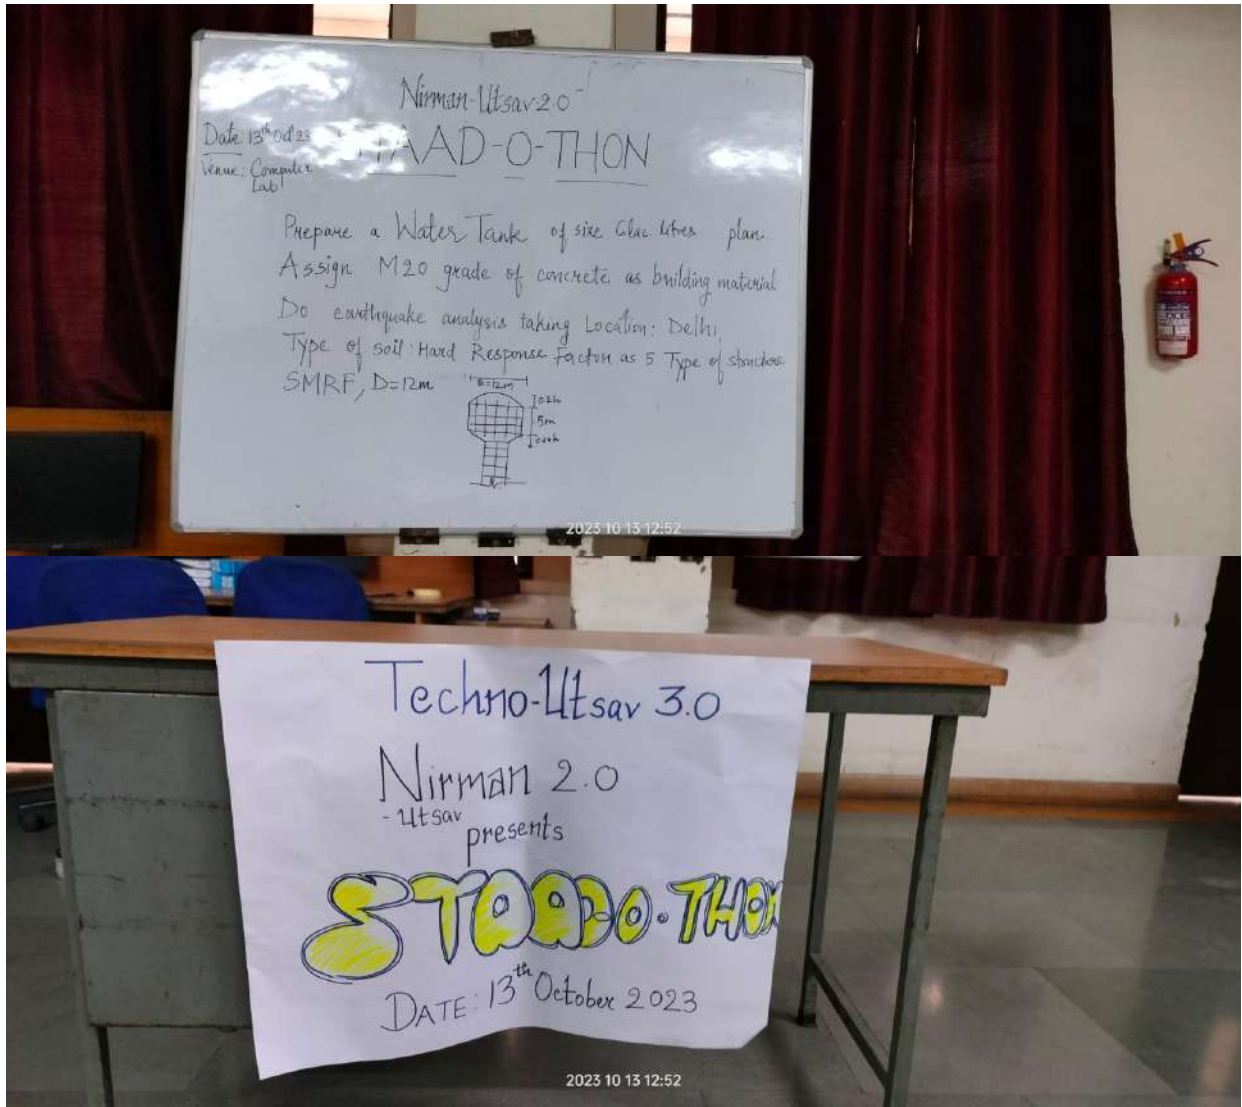 Nirman-Utsav 2.0
Date 13th Oct'23
STAAD-O-THON
Venue: Computer
Lab
Prepare a Water Tank of size 6lac litres plan.
Assign M20 grade of concrete as building material
Do earthquake analysis taking Location: Delhi,
Type of soil: Hard Response Factor as 5 Type of structure
SMRF, D=12m
=12m
5m
2023 10 13 12:52
Techno-Utsav 3.0
Nirman 2.0
-Utsav
presents
STAAD-O-THON
DATE: 13th October 2023
2023 10 13 12:52